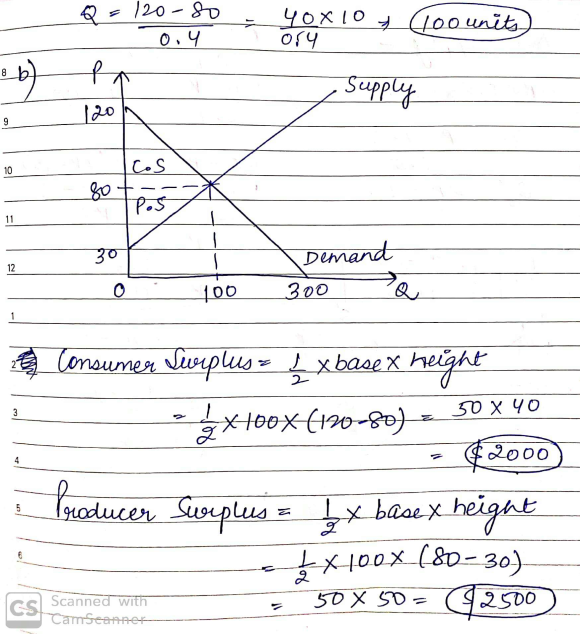 Q = 120 - 80 / 0.4 = 40 x 10 / 0.4 → 100 units
8 b)
P
Supply
120
9
10
C.S
80
P.S
11
30
Demand
12
0 100 300 Q
1
2 Consumer Surplus = 1/2 x base x height
3 = 1/2 x 100 x (120-80) = 50 x 40
4 = $2000
5 Producer Surplus = 1/2 x base x height
6 = 1/2 x 100 x (80-30)
= 50 x 50 = $2500
CS Scanned with
CamScanner